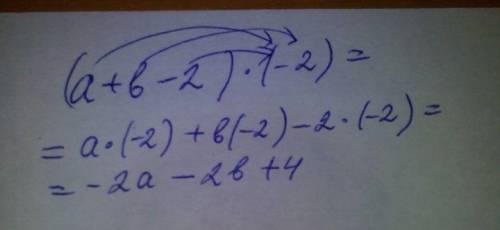 (a+b-2)·(-2)=
=a·(-2)+b(-2)-2·(-2)=
=-2a-2b+4